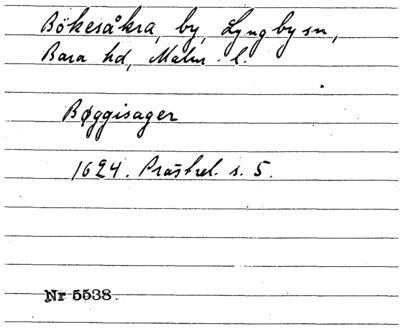 Bökesåkra, by, Lyngby sn,
Bara hd, Malm. l.
Bøggisager
1624. Prästrel. s. 5.
Nr 5538.